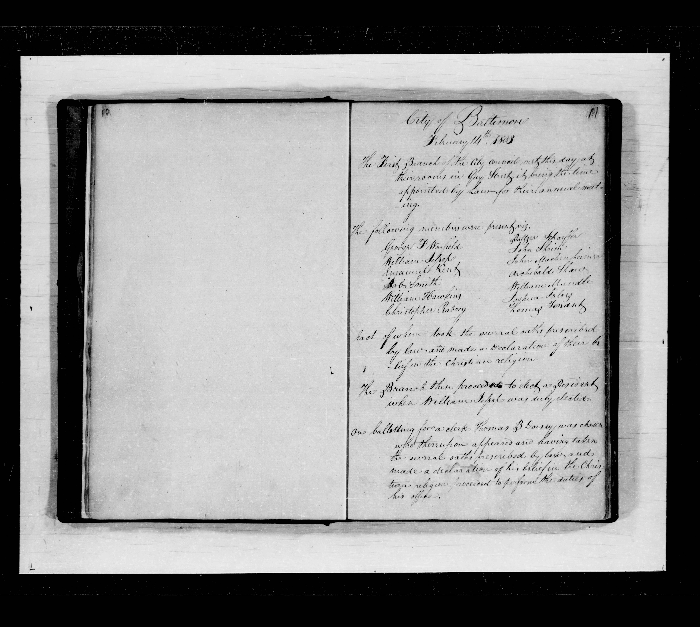 City of Baltimore
February 14th
The First Branch of the City Council met this day at
their rooms in Gay Street it being the time
appointed by Law for their annual meet
ing.
The following members were present viz.
George F Warfield
William
Kent
Smith
William Hawkins
Christopher
John
John
Archibald
William
Joshua
Thomas
Each of whom took the several oaths prescribed
by law and made a declaration of their be
lief in the Christian religion
The Branch then proceeded to elect a President
when William was duly elected
On ballotting for a clerk Thomas B Dorsey was chosen
who thereupon appeared and having taken
the several oaths prescribed by law and
made a declaration of his belief in the Chris
tian religion proceeded to perform the duties of
his office.